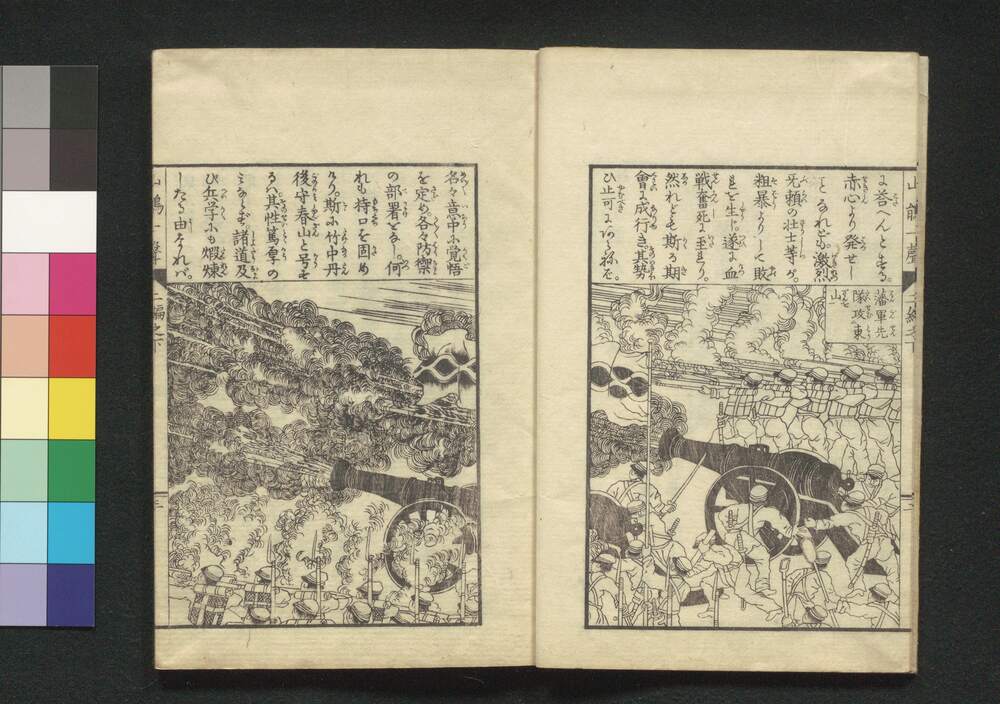 に答へんとする
赤心より発せし
ことなれども激烈
無頼の壮士等が
粗暴よりして敗
を生じ遂に血
戦奮死に至れり
然れども斯る期
會に成行き其勢
ひ止可にあらねば
藩軍先
隊攻東
山
名々意中に覚悟
を定め各々防禦
の部署をなし何
れも持口を固め
たり斯に竹中丹
後守春山と号せ
るハ其性篤厚の
みならず諸道及
び兵学にも煆煉
したる由なれバ
二編之下